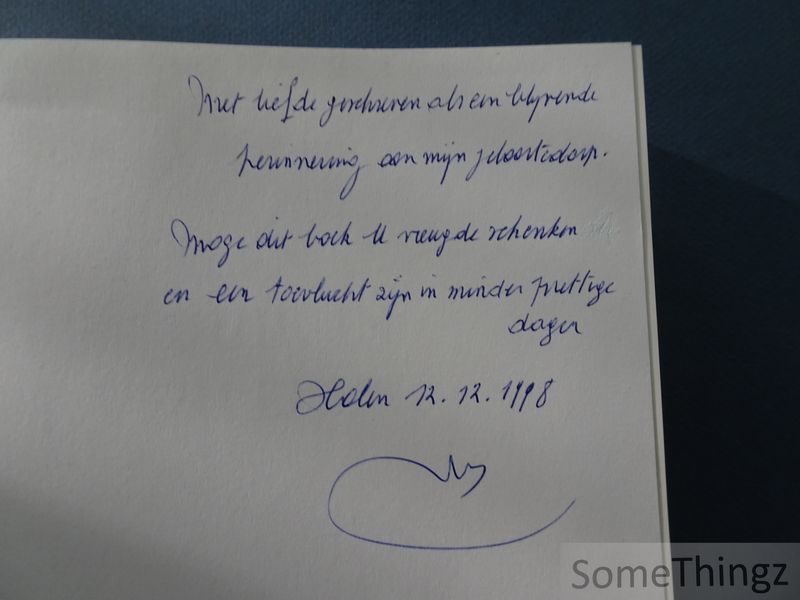 Met liefde geschreven als een blyvende
herinnering aan mijn geboortedorp.
Moge dit boek U vreugde schenken
en een toevlucht zijn in minder prettige
dagen
Halen 12.12.1998
SomeThingz